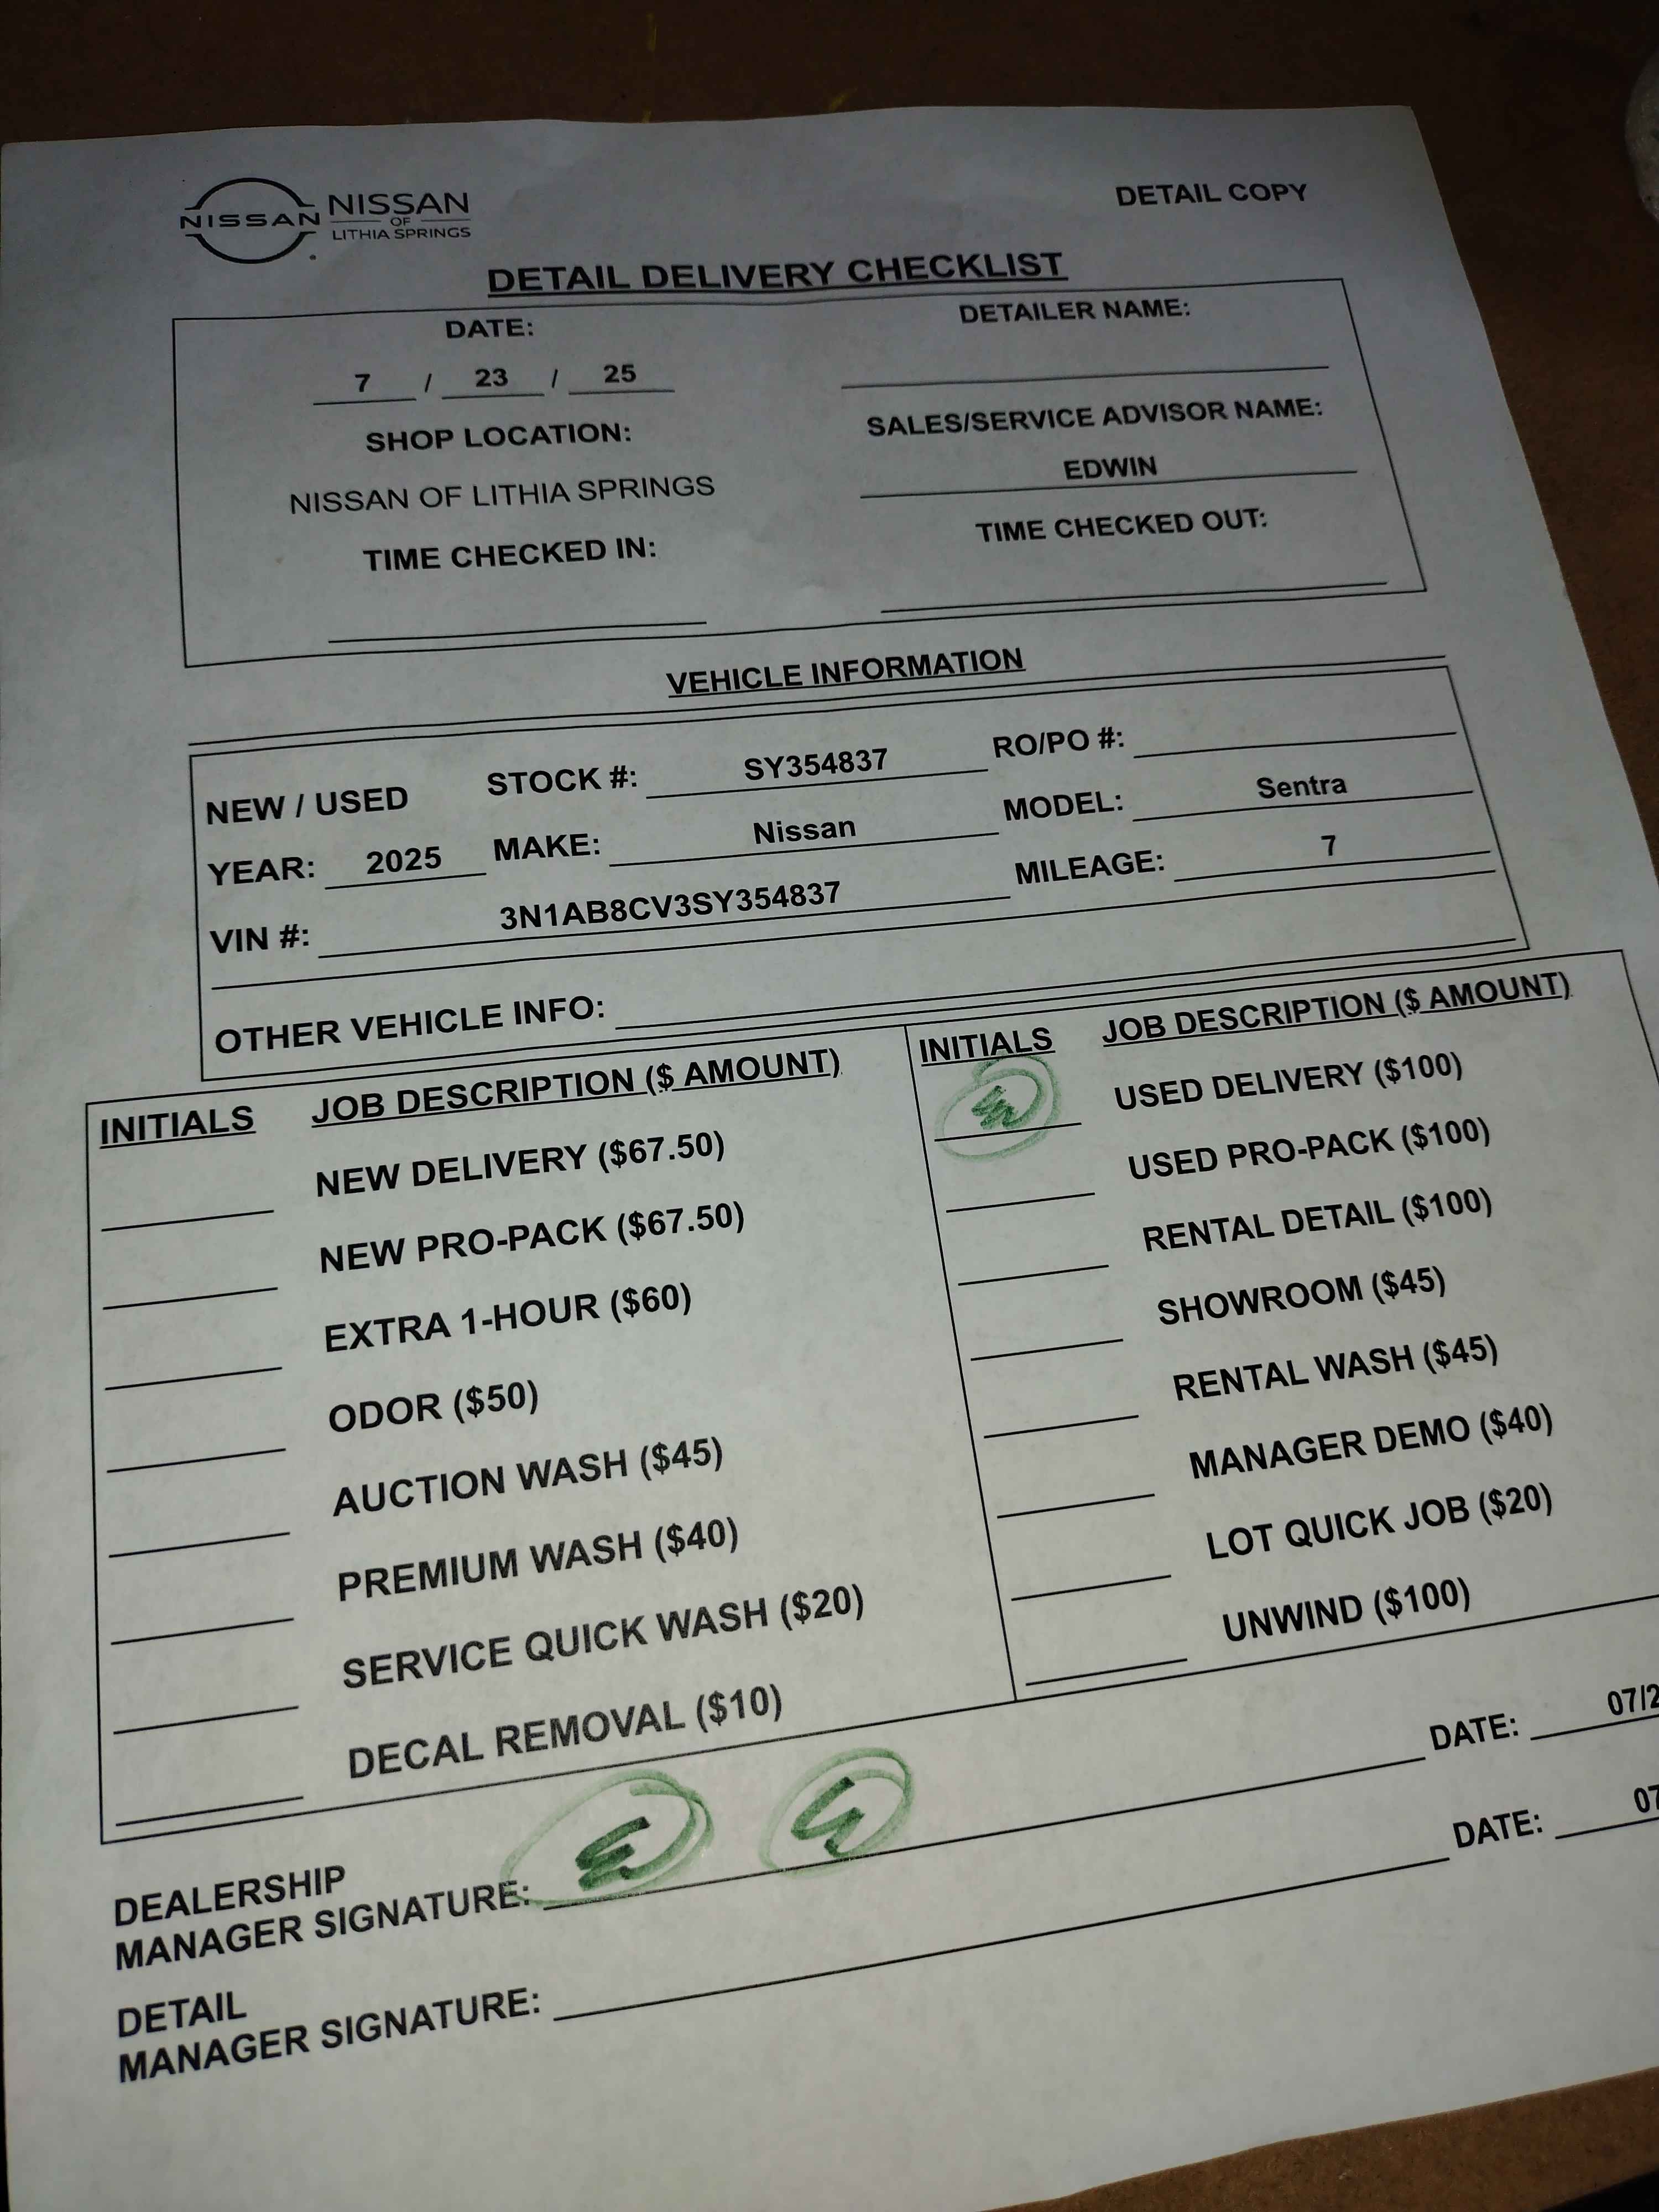 NISSAN NISSAN
OF
LITHIA SPRINGS
DETAIL COPY
DETAIL DELIVERY CHECKLIST
DATE:
7 / 23 / 25
SHOP LOCATION:
NISSAN OF LITHIA SPRINGS
TIME CHECKED IN:
DETAILER NAME:
SALES/SERVICE ADVISOR NAME:
EDWIN
TIME CHECKED OUT:
VEHICLE INFORMATION
NEW / USED STOCK #: SY354837 RO/PO #:
YEAR: 2025 MAKE: Nissan MODEL: Sentra
VIN #: 3N1AB8CV3SY354837 MILEAGE: 7
OTHER VEHICLE INFO:
INITIALS JOB DESCRIPTION ($ AMOUNT)
NEW DELIVERY ($67.50)
NEW PRO-PACK ($67.50)
EXTRA 1-HOUR ($60)
ODOR ($50)
AUCTION WASH ($45)
PREMIUM WASH ($40)
SERVICE QUICK WASH ($20)
DECAL REMOVAL ($10)
INITIALS JOB DESCRIPTION ($ AMOUNT)
USED DELIVERY ($100)
USED PRO-PACK ($100)
RENTAL DETAIL ($100)
SHOWROOM ($45)
RENTAL WASH ($45)
MANAGER DEMO ($40)
LOT QUICK JOB ($20)
UNWIND ($100)
DEALERSHIP
MANAGER SIGNATURE: DATE: 07/2
DETAIL
MANAGER SIGNATURE: DATE: 07